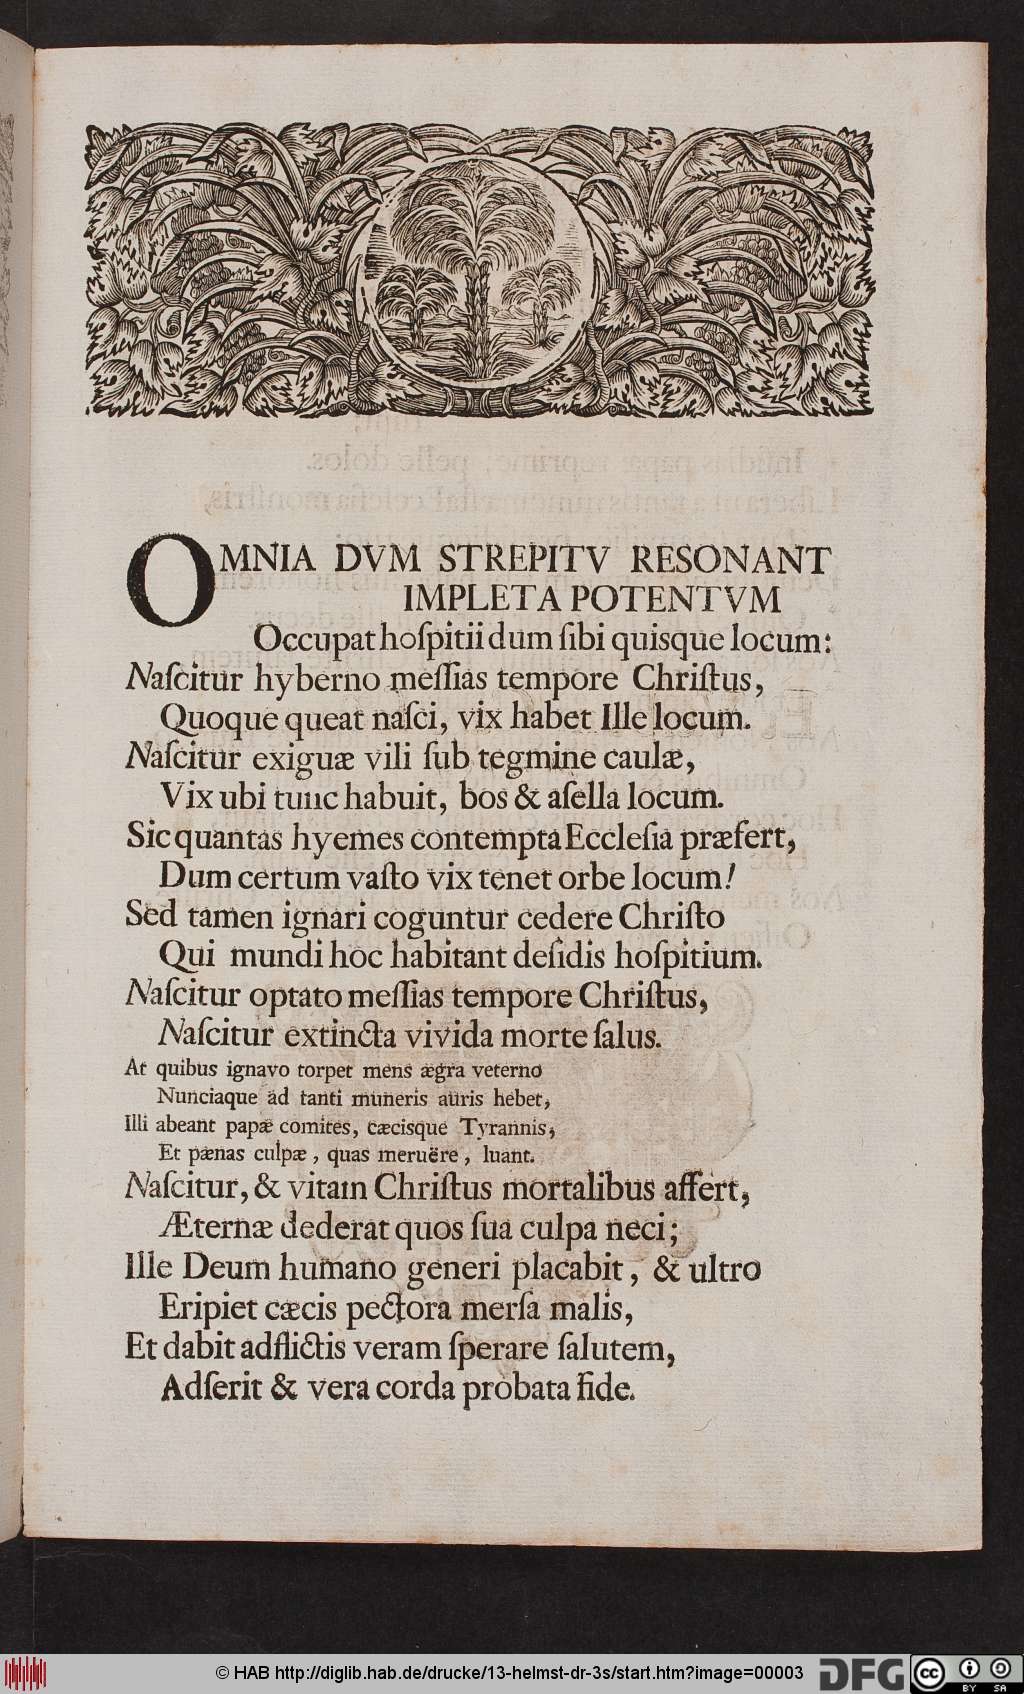 OMNIA DVM STREPITV RESONANT
IMPLETA POTENTVM
Occupat hoſpitii dum ſibi quisque locum:
Naſcitur hyberno meſſias tempore Chriſtus,
Quoque queat naſci, vix habet Ille locum.
Naſcitur exiguæ vili ſub tegmine caulæ,
Vix ubi tunc habuit, bos & aſella locum.
Sic quantas hyemes contempta Eccleſia præfert,
Dum certum vaſto vix tenet orbe locum!
Sed tamen ignari coguntur cedere Chriſto
Qui mundi hoc habitant deſidis hoſpitium.
Naſcitur optato meſſias tempore Chriſtus,
Naſcitur extincta vivida morte ſalus.
At quibus ignavo torpet mens ægra veterno
Nunciaque ad tanti muneris auris hebet,
Illi abeant papæ comites, cæcisque Tyrannis,
Et pænas culpæ, quas meruëre, luant.
Naſcitur, & vitam Chriſtus mortalibus affert,
Æternæ dederat quos ſua culpa neci;
Ille Deum humano generi placabit, & ultro
Eripiet cæcis pectora merſa malis,
Et dabit adflictis veram ſperare ſalutem,
Adſerit & vera corda probata fide.
© HAB http://diglib.hab.de/drucke/13-helmst-dr-3s/start.htm?image=00003
DFG
cc BY SA